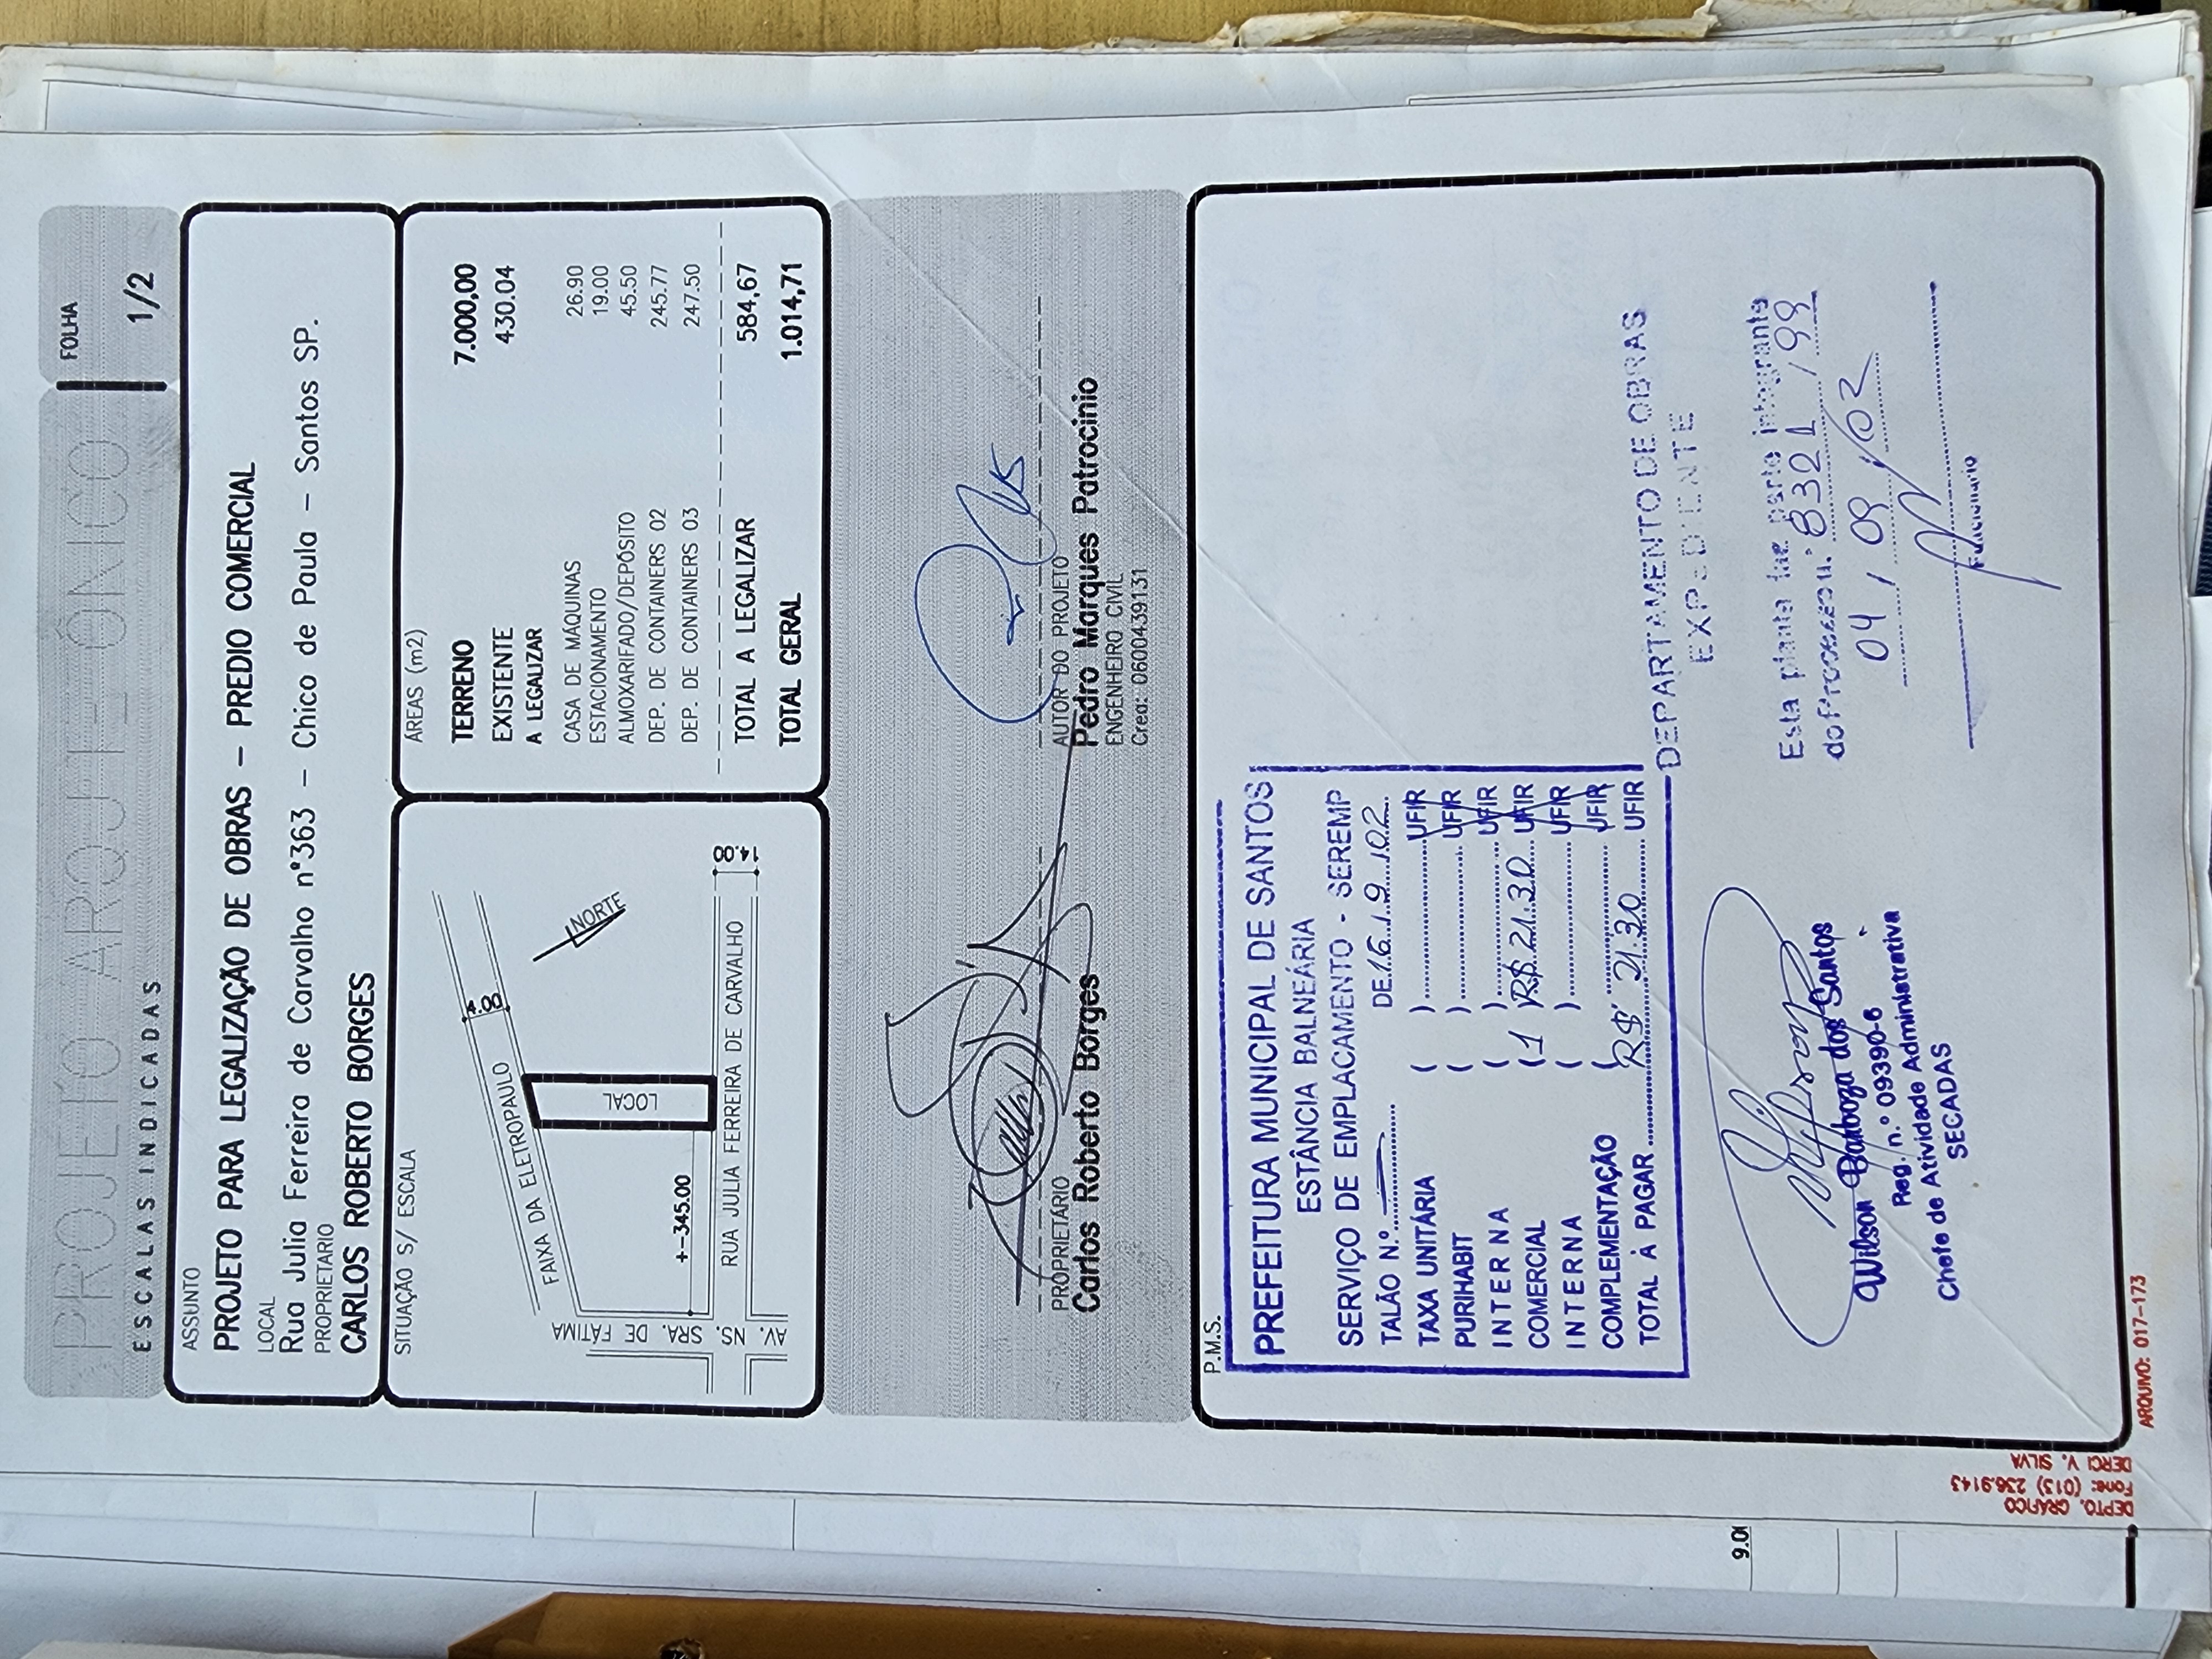 PROJETO ARQUITETÔNICO
ESCALAS INDICADAS
FOLHA
1/2
ASSUNTO
PROJETO PARA LEGALIZAÇÃO DE OBRAS - PREDIO COMERCIAL
LOCAL
Rua Julia Ferreira de Carvalho n°363 - Chico de Paula - Santos SP.
PROPRIETARIO
CARLOS ROBERTO BORGES
SITUAÇÃO S/ ESCALA
FAIXA DA ELETROPAULO
4.00
NORTE
LOCAL
+-345.00
RUA JULIA FERREIRA DE CARVALHO
14.00
AV. NS. SRA. DE FATIMA
ÁREAS (m2)
TERRENO 7.000,00
EXISTENTE 430.04
A LEGALIZAR
CASA DE MÁQUINAS 26.90
ESTACIONAMENTO 19.00
ALMOXARIFADO/DEPÓSITO 45.50
DEP. DE CONTAINERS 02 245.77
DEP. DE CONTAINERS 03 247.50
TOTAL A LEGALIZAR 584,67
TOTAL GERAL 1.014,71
PROPRIETÁRIO
Carlos Roberto Borges
AUTOR DO PROJETO
Pedro Marques Patrocinio
ENGENHEIRO CIVIL
Crea: 0600439131
P.M.S.
PREFEITURA MUNICIPAL DE SANTOS
ESTÂNCIA BALNEÁRIA
SERVIÇO DE EMPLACAMENTO - SEREMP
TALÃO N.º DE 16/9/02
TAXA UNITÁRIA ( ) UFIR
PURIHABIT ( ) UFIR
INTERNA ( ) UFIR
COMERCIAL (1) R$ 21.30 UFIR
INTERNA ( ) UFIR
COMPLEMENTAÇÃO ( UFIR
TOTAL À PAGAR R$ 21.30 UFIR
DEPARTAMENTO DE OBRAS
EXPEDIENTE
Esta planta faz parte integrante
do Processo n.º 8321/99
04/09/02
Funcionário
Wilson Barboza dos Santos
Reg. n.º 09390-6
Chefe de Atividade Administrativa
SECADAS
ARQUIVO: 017-173
DEPTO. GRÁFICO
Fone: (013) 236.9143
DERCI V. SILVA